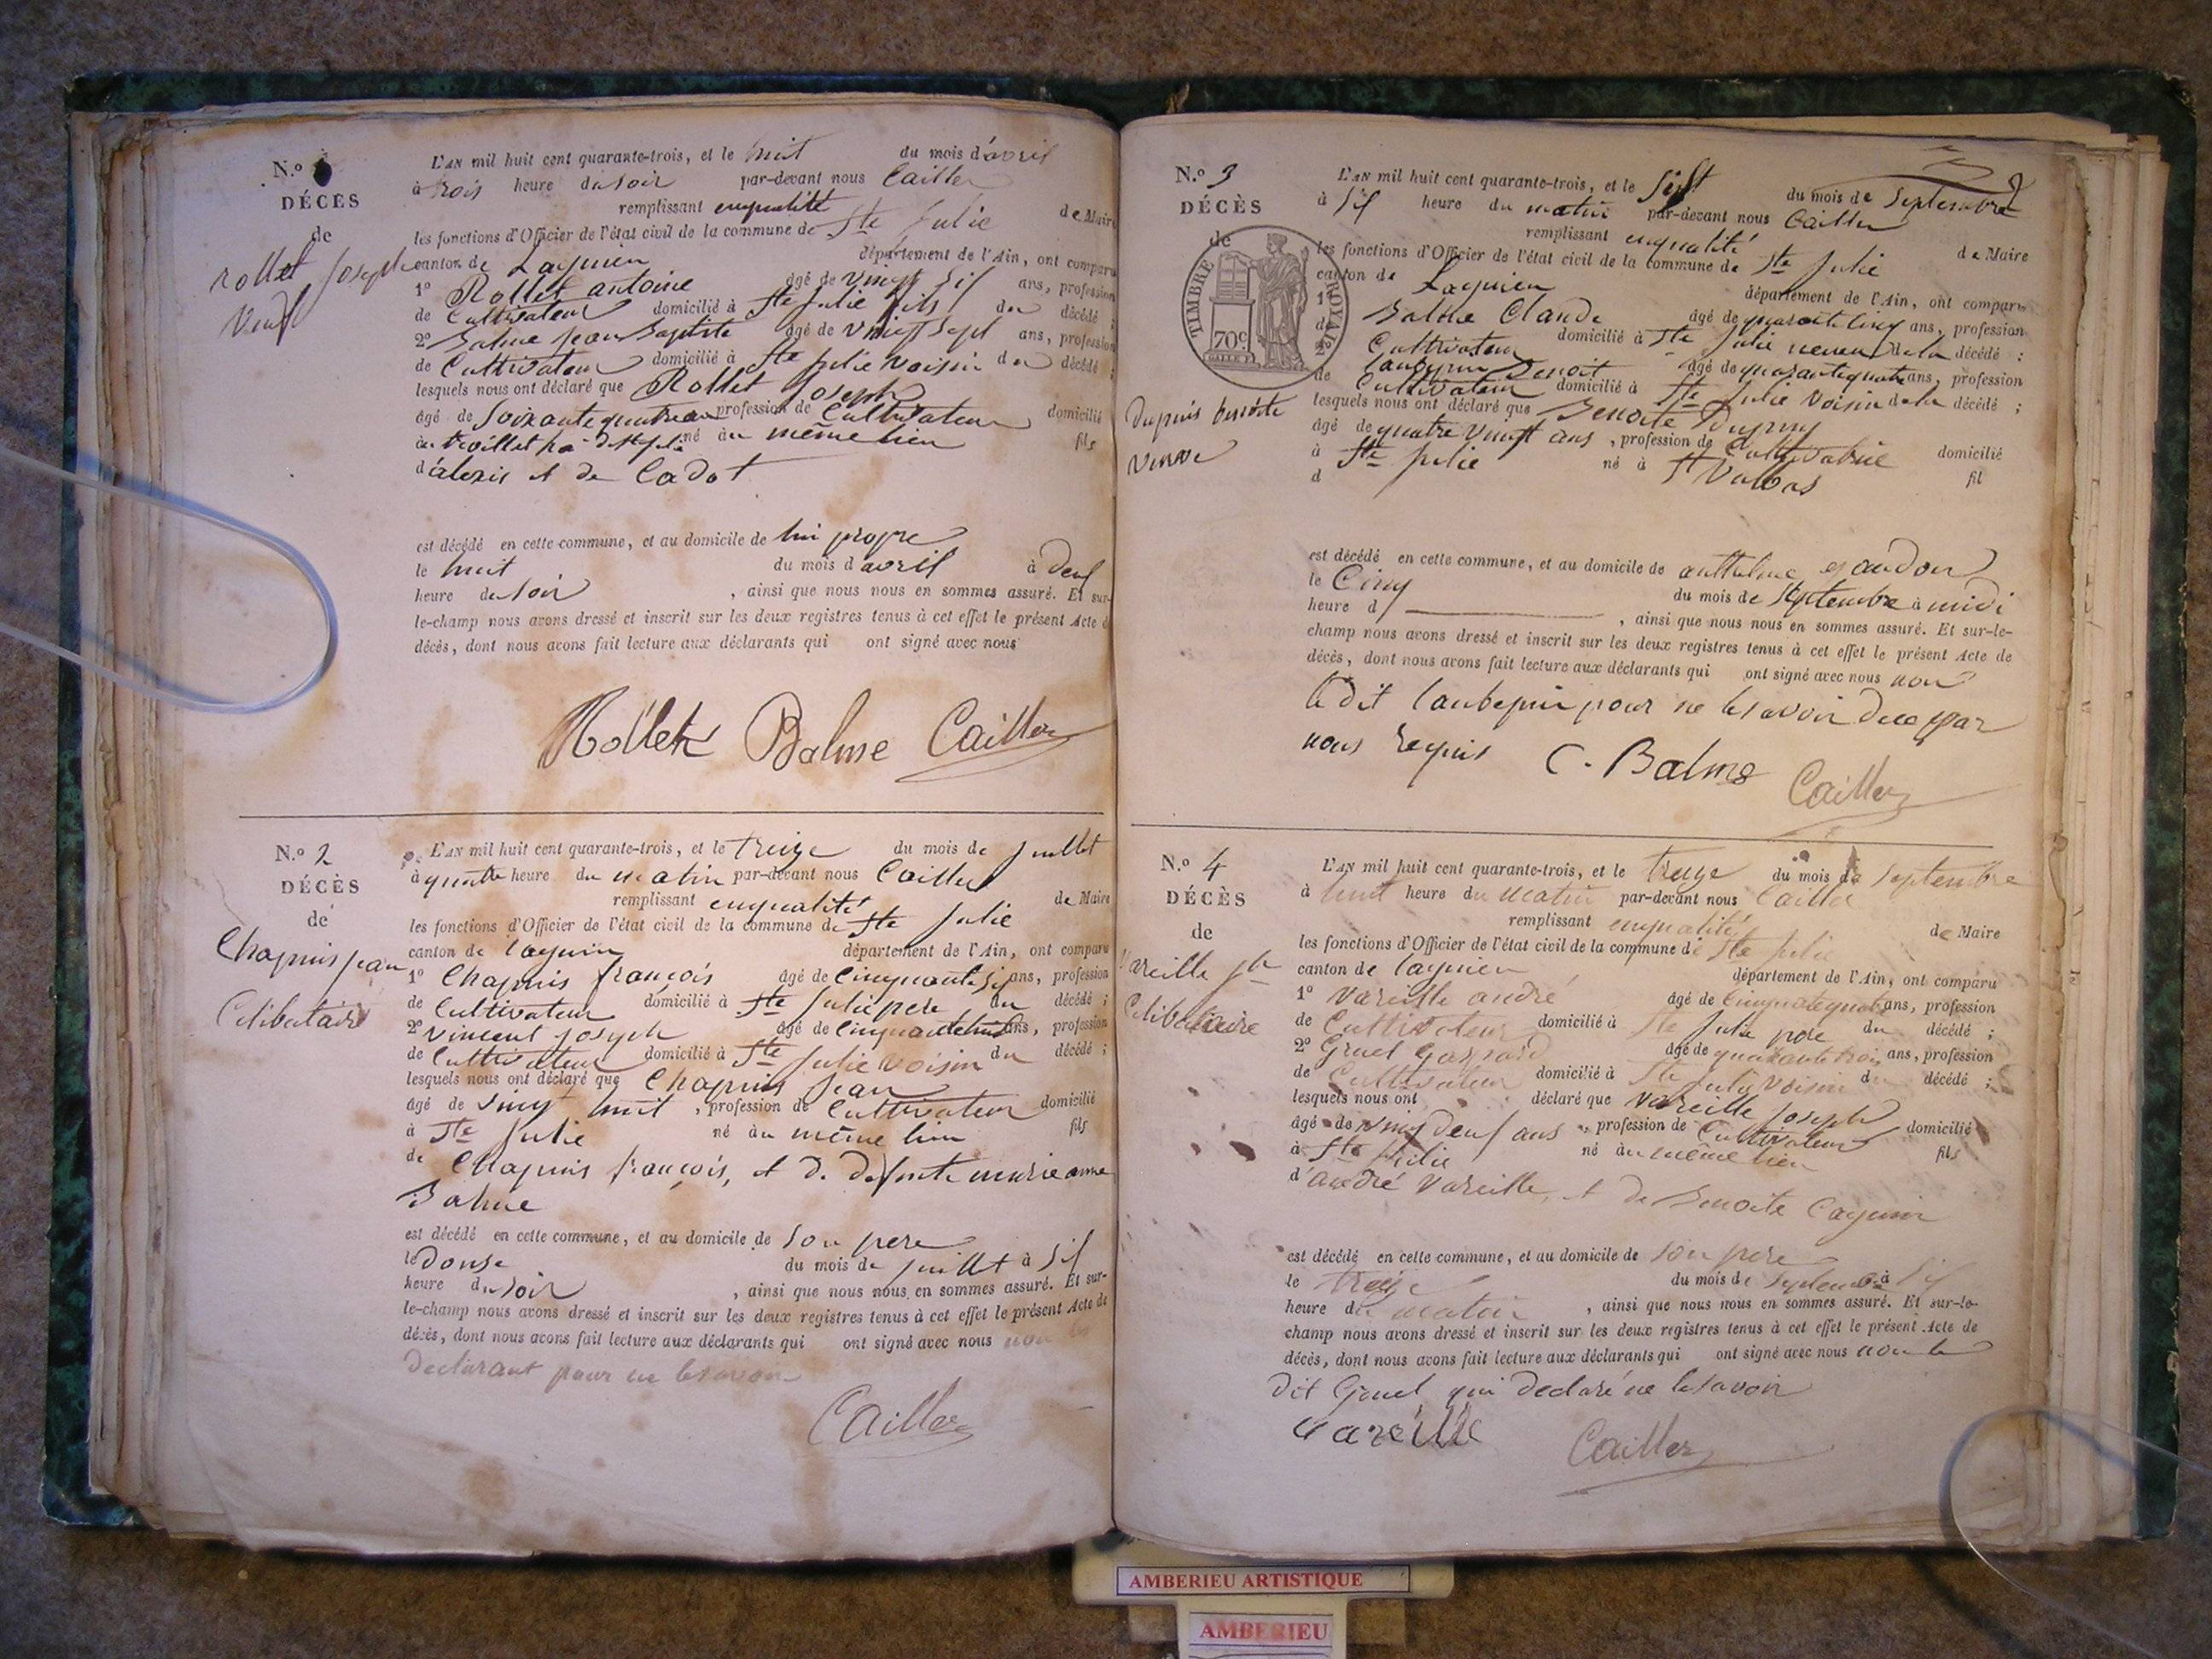 N.º
DÉCÈS
de
rollet Joseph
Veuf
L'AN mil huit cent quarante-trois, et le huit du mois d'avril
à trois heure du soir par-devant nous Cailler
remplissant enqualité de Maire
les fonctions d'Officier de l'état civil de la commune de Ste Julie
canton de Lagnieu département de l'Ain, ont comparu
1º Rollet antoine âgé de vingt sif ans, profession
de Cultivateur domicilié à Ste Julie fils du décédé ;
2º Balme jean Baptiste âgé de vingt sept ans, profession
de Cultivateur domicilié à Ste Julie voisin du décédé ;
lesquels nous ont déclaré que Rollet Joseph
âgé de Soixante quatre an profession de Cultivateur domicilié
né au même lieu fils
d'alexis et de Cadot
est décédé en cette commune, et au domicile de lui propre
le huit du mois d'avril à deuf
heure du soir , ainsi que nous nous en sommes assuré. Et sur-
le-champ nous avons dressé et inscrit sur les deux registres tenus à cet effet le présent Acte de
décès, dont nous avons fait lecture aux déclarants qui ont signé avec nous
Rollet Balme Cailler
N.º 2
DÉCÈS
de
Chapuis jean
Célibataire
L'AN mil huit cent quarante-trois, et le treize du mois de juillet
à quatre heure du matin par-devant nous Cailler
remplissant enqualité de Maire
les fonctions d'Officier de l'état civil de la commune de Ste Julie
canton de Lagnieu département de l'Ain, ont comparu
1º Chapuis françois âgé de Cinquante sif ans, profession
de Cultivateur domicilié à Ste Julie pere du décédé ;
2º Vincent Joseph âgé de Cinquante huit ans, profession
de Cultivateur domicilié à Ste Julie voisin du décédé ;
lesquels nous ont déclaré que Chapuis Jean
âgé de vingt huit , profession de Cultivateur domicilié
à Ste Julie né au même lieu fils
de Chapuis françois, et de defunte marie anne
Balme
est décédé en cette commune, et au domicile de son pere
le douse du mois de juillet à sif
heure du soir , ainsi que nous nous en sommes assuré. Et sur-
le-champ nous avons dressé et inscrit sur les deux registres tenus à cet effet le présent Acte de
décès, dont nous avons fait lecture aux déclarants qui ont signé avec nous non les
declarant pour ne le savoir
Cailler
N.º 3
DÉCÈS
de
TIMBRE ROYAL
70c
Dupuis benoîte
Veuve
L'AN mil huit cent quarante-trois, et le sept du mois de Septembre
à sif heure du matin par-devant nous Cailler
remplissant enqualité de Maire
les fonctions d'Officier de l'état civil de la commune de Ste Julie
canton de Lagnieu département de l'Ain, ont comparu
1º Balme Claude âgé de quarante cinq ans, profession
de Cultivateur domicilié à Ste Julie neveu de la décédé ;
2º Laubepin Benoit âgé de quarante quatre ans, profession
de Cultivateur domicilié à Ste Julie voisin de la décédé ;
lesquels nous ont déclaré que Benoite Dupuy
âgé de quatre vingt ans , profession de Cultivatrice domicilié
à Ste Julie né à St Vulbas fil
d
est décédé en cette commune, et au domicile de anthelme
le Cinq du mois de Septembre à midi
heure d , ainsi que nous nous en sommes assuré. Et sur-le-
champ nous avons dressé et inscrit sur les deux registres tenus à cet effet le présent Acte de
décès, dont nous avons fait lecture aux déclarants qui ont signé avec nous non
le dit Laubepin pour ne le savoir de ce par
nous requis C. Balme Cailler
N.º 4
DÉCÈS
de
Vareille jh
Célibataire
L'AN mil huit cent quarante-trois, et le treize du mois de Septembre
à huit heure du matin par-devant nous Cailler
remplissant enqualité de Maire
les fonctions d'Officier de l'état civil de la commune de Ste Julie
canton de Lagnieu département de l'Ain, ont comparu
1º Vareille andré âgé de Cinquante quatre ans, profession
de Cultivateur domicilié à Ste Julie pere du décédé ;
2º Gruel Gaspard âgé de quarante trois ans, profession
de Cultivateur domicilié à Ste Julie voisin du décédé ;
lesquels nous ont déclaré que Vareille Joseph
âgé de vingt deuf ans , profession de Cultivateur domicilié
à Ste Julie né au même lieu fils
d'andré Vareille, et de Benoite Cagnin
est décédé en cette commune, et au domicile de son pere
le treize du mois de Septembre à sif
heure du matin , ainsi que nous nous en sommes assuré. Et sur-le-
champ nous avons dressé et inscrit sur les deux registres tenus à cet effet le présent Acte de
décès, dont nous avons fait lecture aux déclarants qui ont signé avec nous non le
dit Gruel qui declaré ne le savoir
Vareille Cailler
AMBERIEU ARTISTIQUE
AMBERIEU